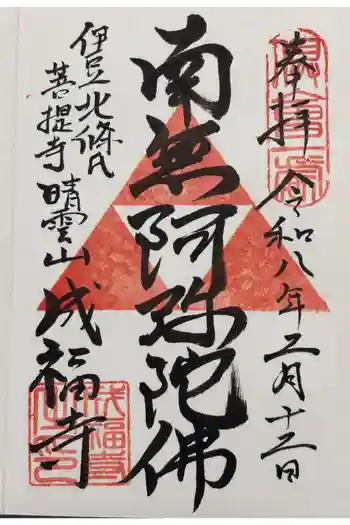 奉拝 令和八年二月十二日
南無阿弥陀佛
伊豆北條氏
菩提寺 晴雲山 成福寺